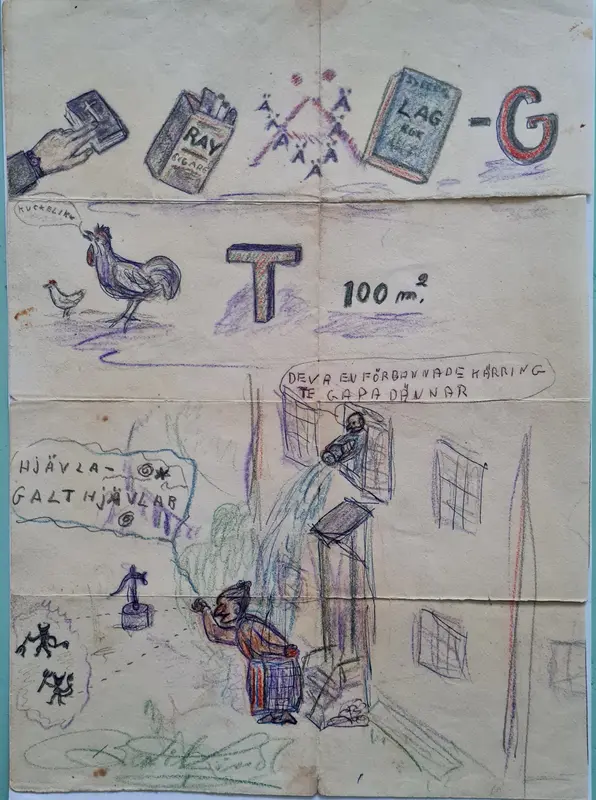 RAY
CIGARR
Ä Ä Ä Ä Ä Ä Ä Ä Ä Ä
LAG
-G
KUCKELIKU
T
100 m².
DE VA EN FÖRBANNADE KÄRRING
TE GAPA DÄNNAR
HJÄVLA-
GALT HJÄVLAR